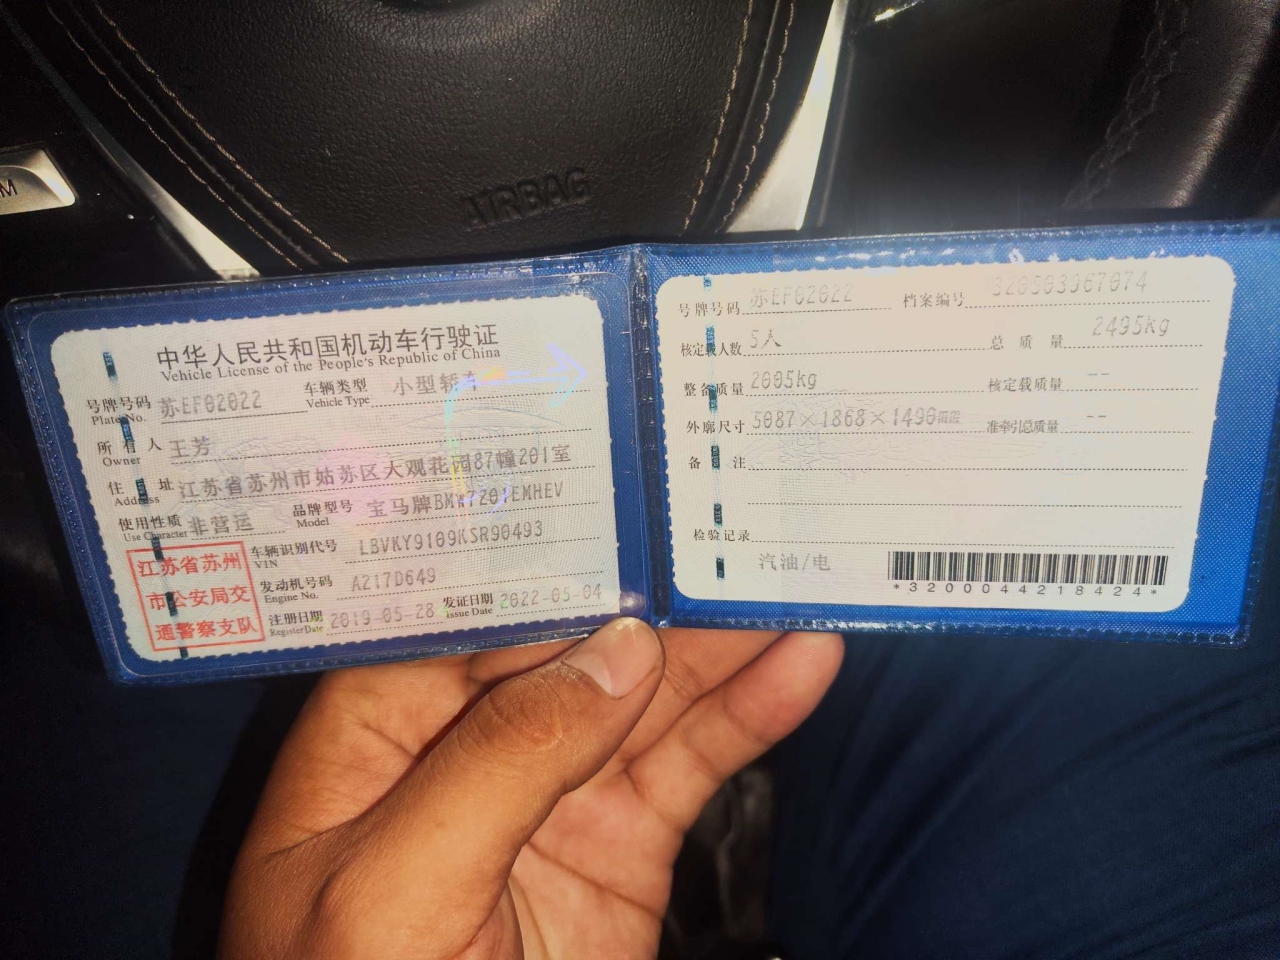 M
AIRBAG
中华人民共和国机动车行驶证
Vehicle License of the People's Republic of China
号牌号码 苏EF02022 车辆类型 小型轿车
Plate No. Vehicle Type
所有人 王芳
Owner
住址 江苏省苏州市姑苏区大观花园87幢201室
Address
使用性质 非营运 品牌型号 宝马牌BMW7201EMHEV
Use Character Model
江苏省苏州
市公安局交
通警察支队
车辆识别代号 LBVKY9109KSR90493
VIN
发动机号码 A217D649
Engine No.
注册日期 2019-05-28 发证日期 2022-05-04
Register Date Issue Date
号牌号码 苏EF02022 档案编号 320503967074
核定载人数 5人 总质量 2495kg
整备质量 2005kg 核定载质量 --
外廓尺寸 5087×1868×1490 准牵引总质量 --
备注
检验记录
汽油/电
*3200044218424*